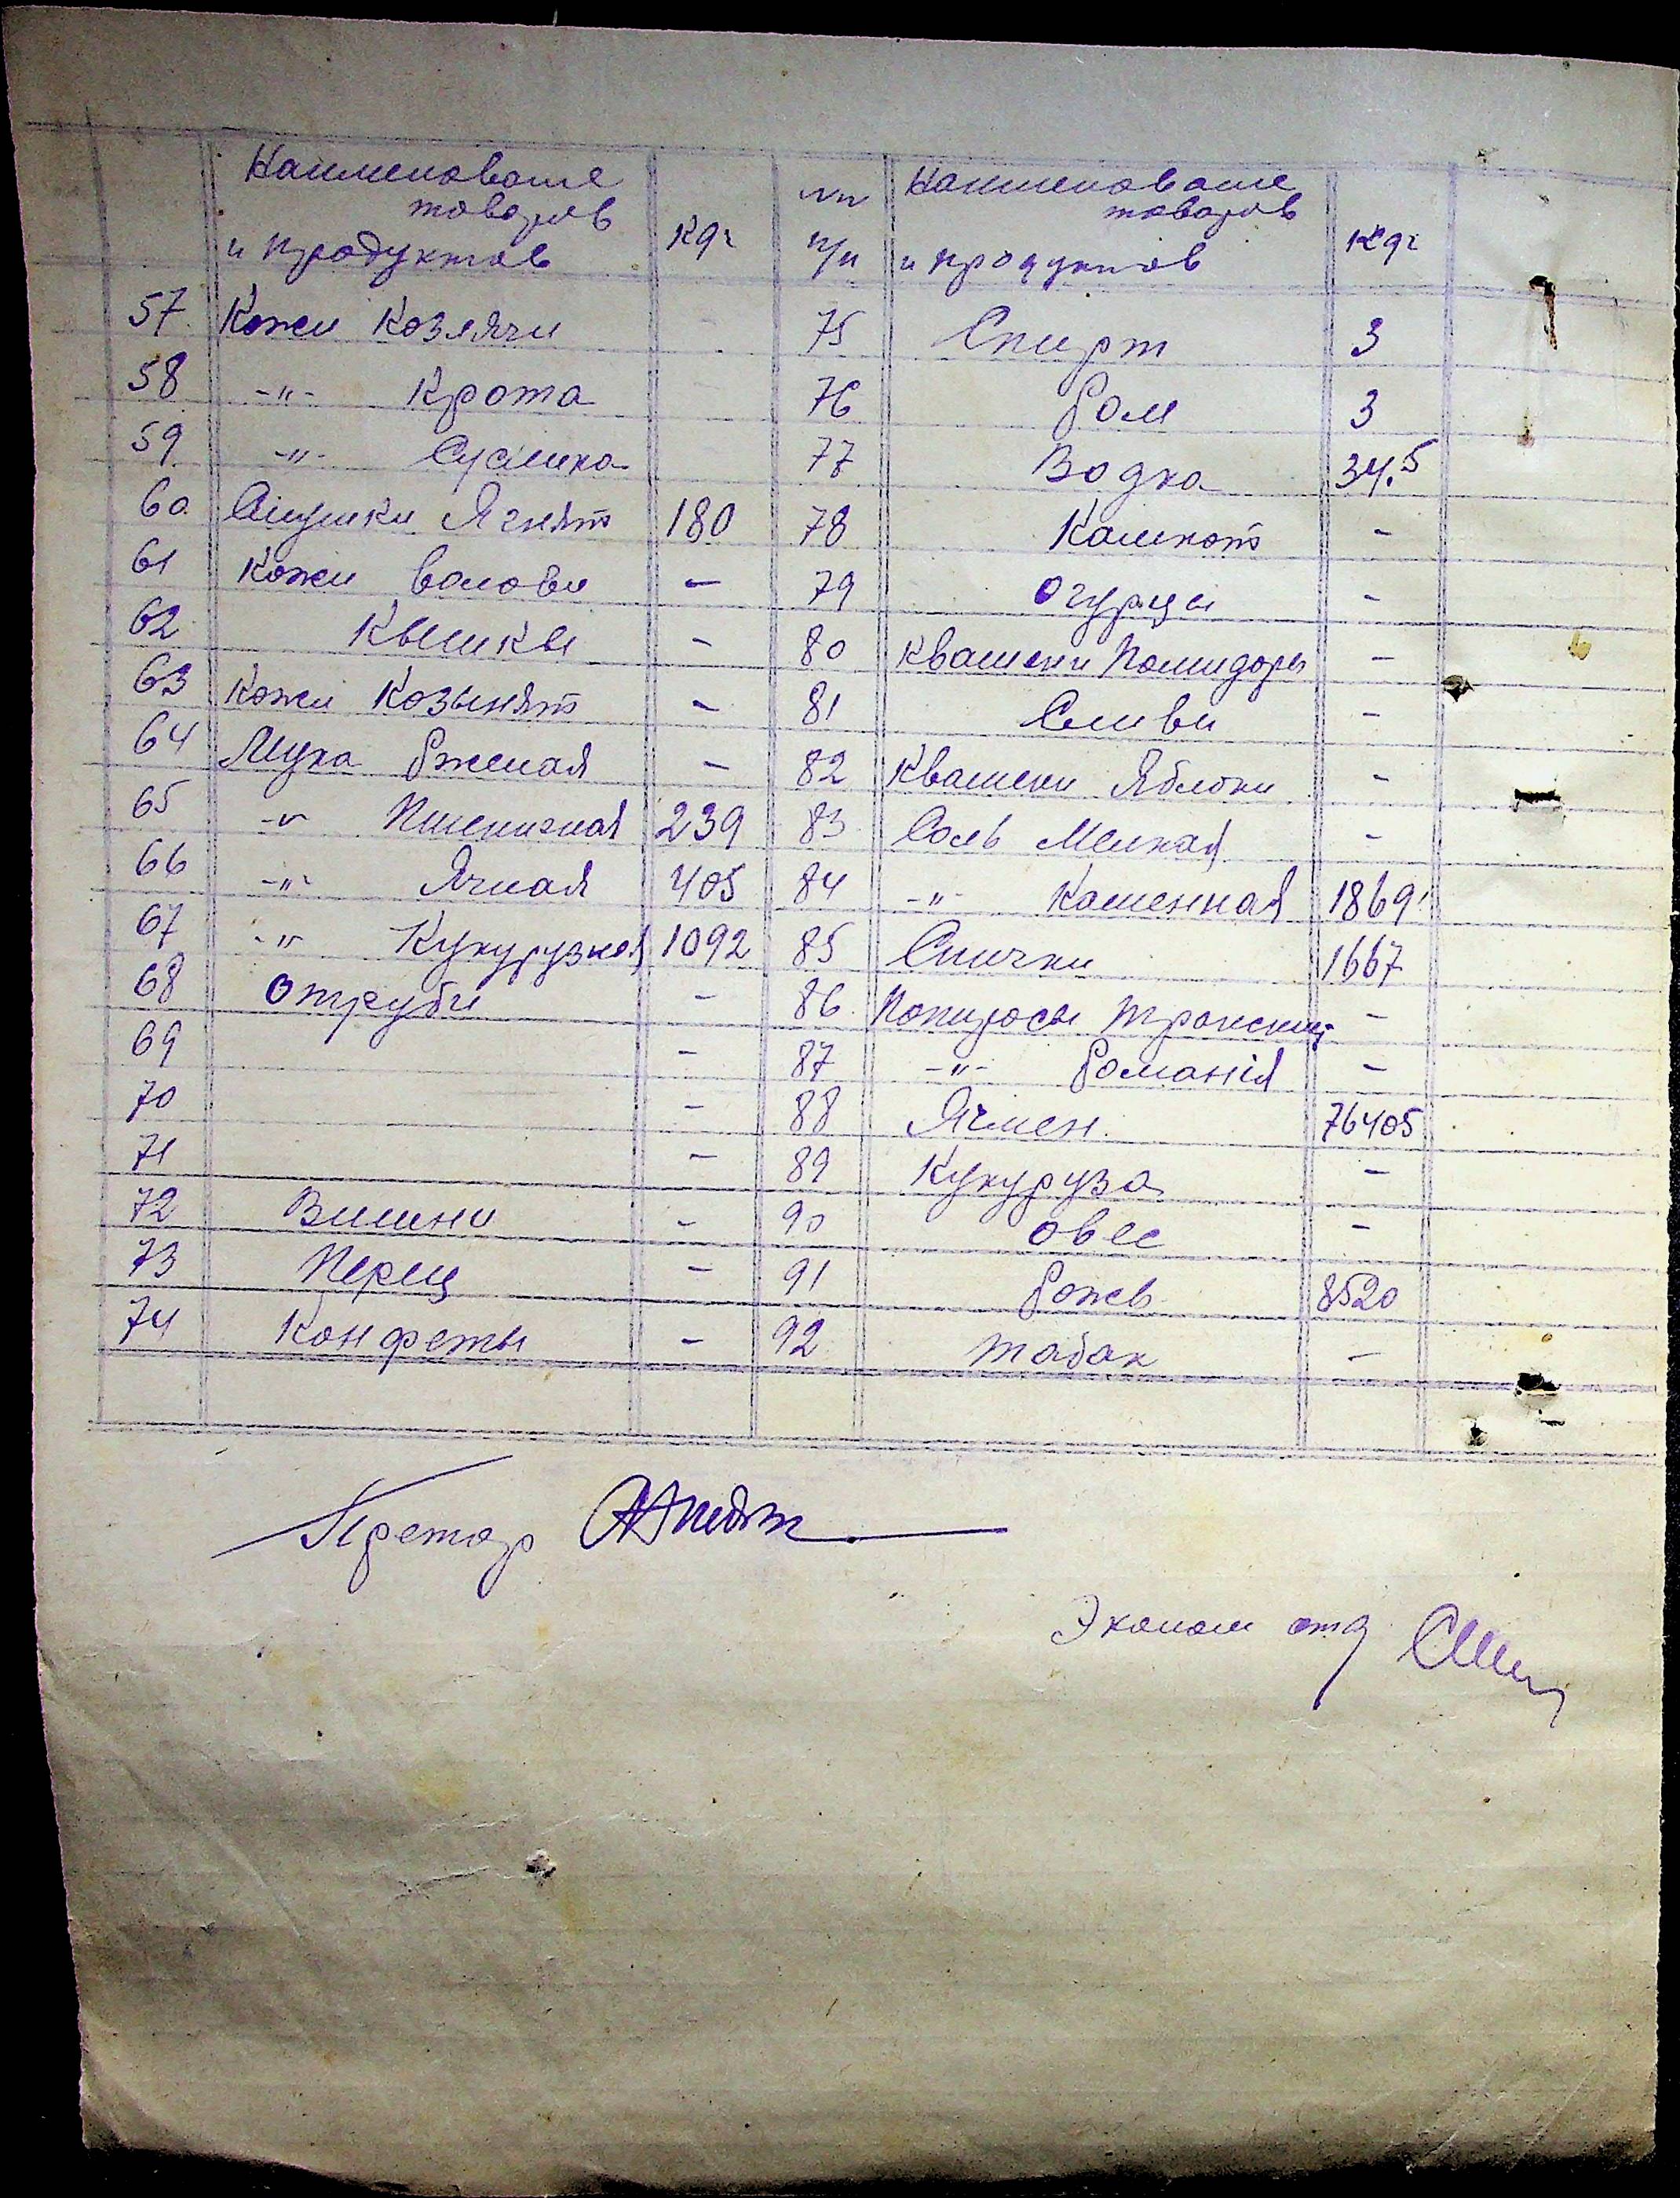 Наименование товаров и продуктов | Кдг | №№ п/п | Наименование товаров и продуктов | Кдг
57 Кожи Козлячи | 75 Спирт 3
58 -"- Крота | 76 Ром 3
59 -"- Суслика | 77 Водка 34.5
60 Смушки Ягнят 180 | 78 Компот -
61 Кожи Волови - | 79 Огурци -
62 Кышкы - | 80 Квашени Помидоры -
63 Кожи Козынят - | 81 Сливи -
64 Мука Ржаная - | 82 Квашени Яблоки -
65 -"- Пшеничная 239 | 83 Соль Мелкая -
66 -"- Ячная 405 | 84 -"- Каменная 1869
67 -"- Кукурузная 1092 | 85 Спички 1667
68 Отруби - | 86 Папиросы -
69 - | 87 -"- Романія -
70 - | 88 Ячмен 76405
71 - | 89 Кукуруза -
72 Вишни - | 90 Овес -
73 Перец - | 91 Рожь 8520
74 Конфеты - | 92 Табак -
Претор
Эконом отд